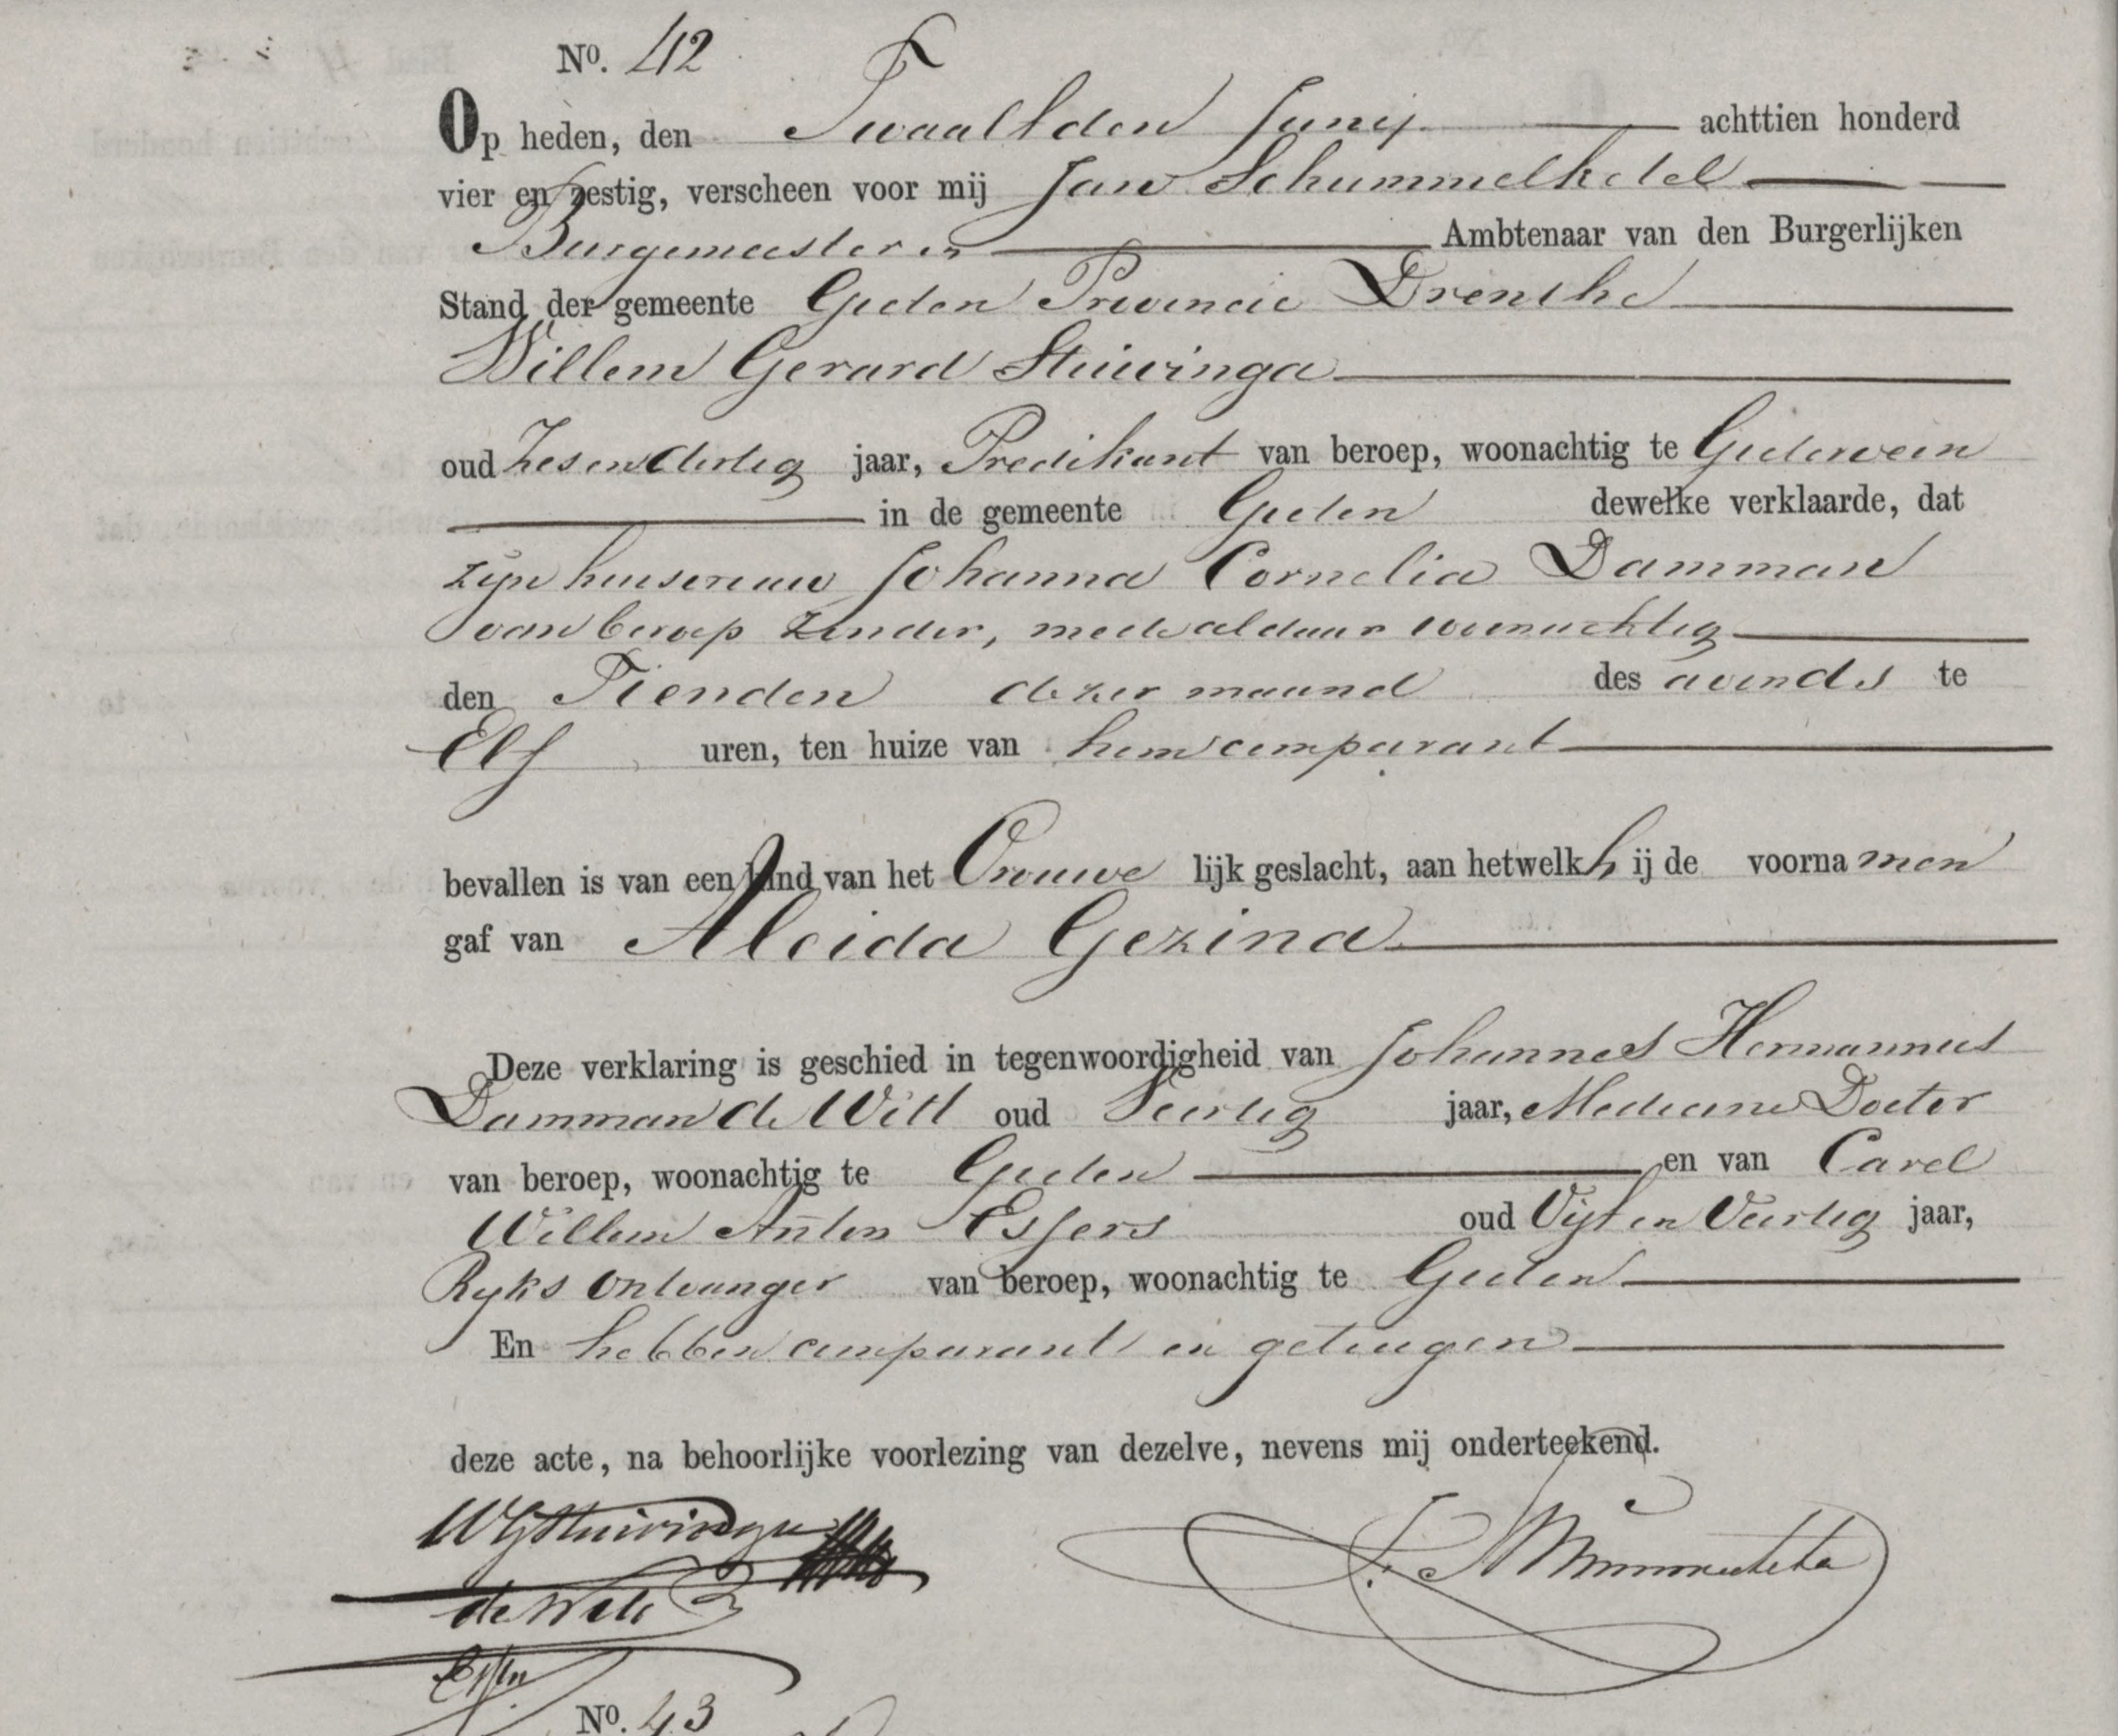 No. 42
Op heden, den Twaalfden Junij achttien honderd
vier en zestig, verscheen voor mij Jan Schummelketel
Burgemeester en Ambtenaar van den Burgerlijken
Stand der gemeente Gieten Provincie Drenthe
Willem Gerard Stuivinga
oud Zes en dertig jaar, Predikant van beroep, woonachtig te Gieterveen
in de gemeente Gieten dewelke verklaarde, dat
zijn huisvrouw Johanna Cornelia Damman
van beroep zonder, mede aldaar woonachtig
den Tienden dezer maand des avonds te
Elf uren, ten huize van hem comparant
bevallen is van een kind van het Vrouwe lijk geslacht, aan hetwelk h ij de voorna men
gaf van Aleida Gezina
Deze verklaring is geschied in tegenwoordigheid van Johannes Hermannus
Damman de Witt oud Veertig jaar, Medicine Doctor
van beroep, woonachtig te Gieten en van Carel
Willem Anton Essers oud Vijf en Veertig jaar,
Ryks Ontvanger van beroep, woonachtig te Gieten
En hebben comparant en getuigen
deze acte, na behoorlijke voorlezing van dezelve, nevens mij onderteekend.
WGStuivinga
de Witt
No. 43